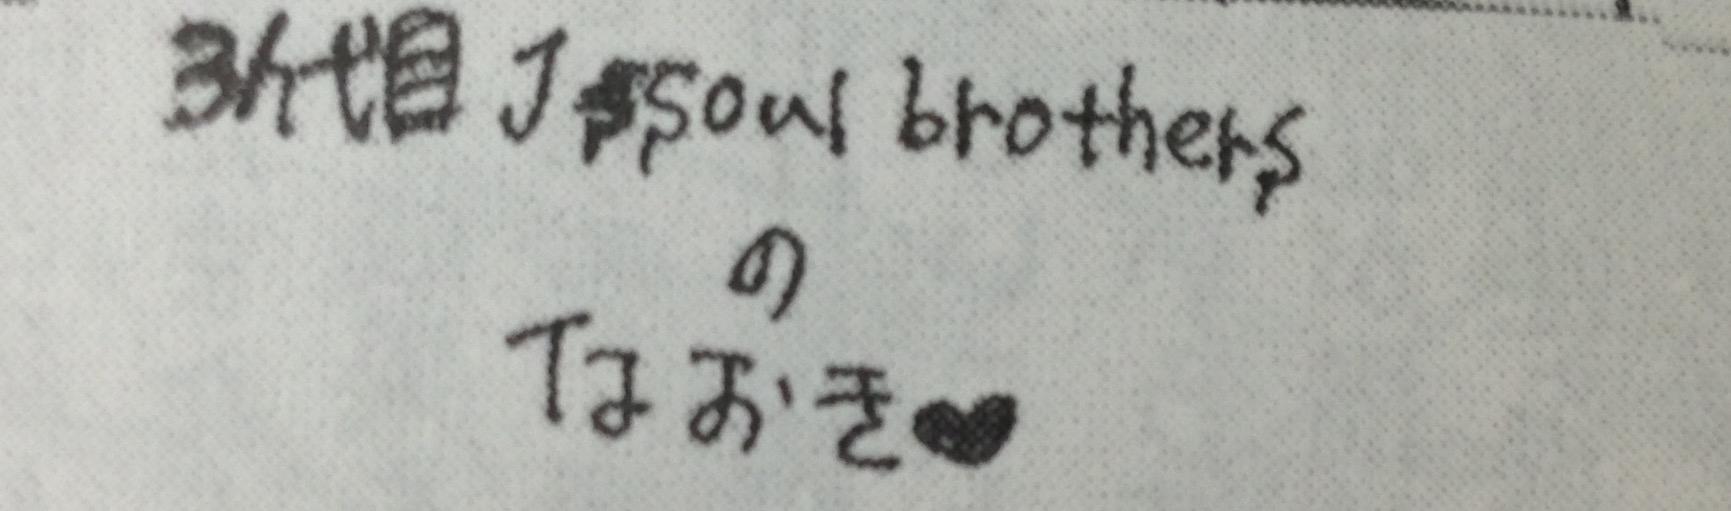 3代目 J soul brothers
の
なおき♥